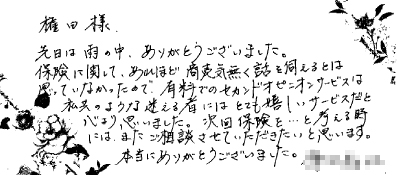 権田様.
先日は雨の中、ありがとうございました。
保険に関して、あれほど商売気無く話を伺えるとは
思っていなかったので、有料でのセカンドオピニオンサービスは
私共のような迷える者にはとても嬉しいサービスだと
心より思いました。次回保険を…と考える時
には、またご相談させていただきたいと思います。
本当にありがとうございました。